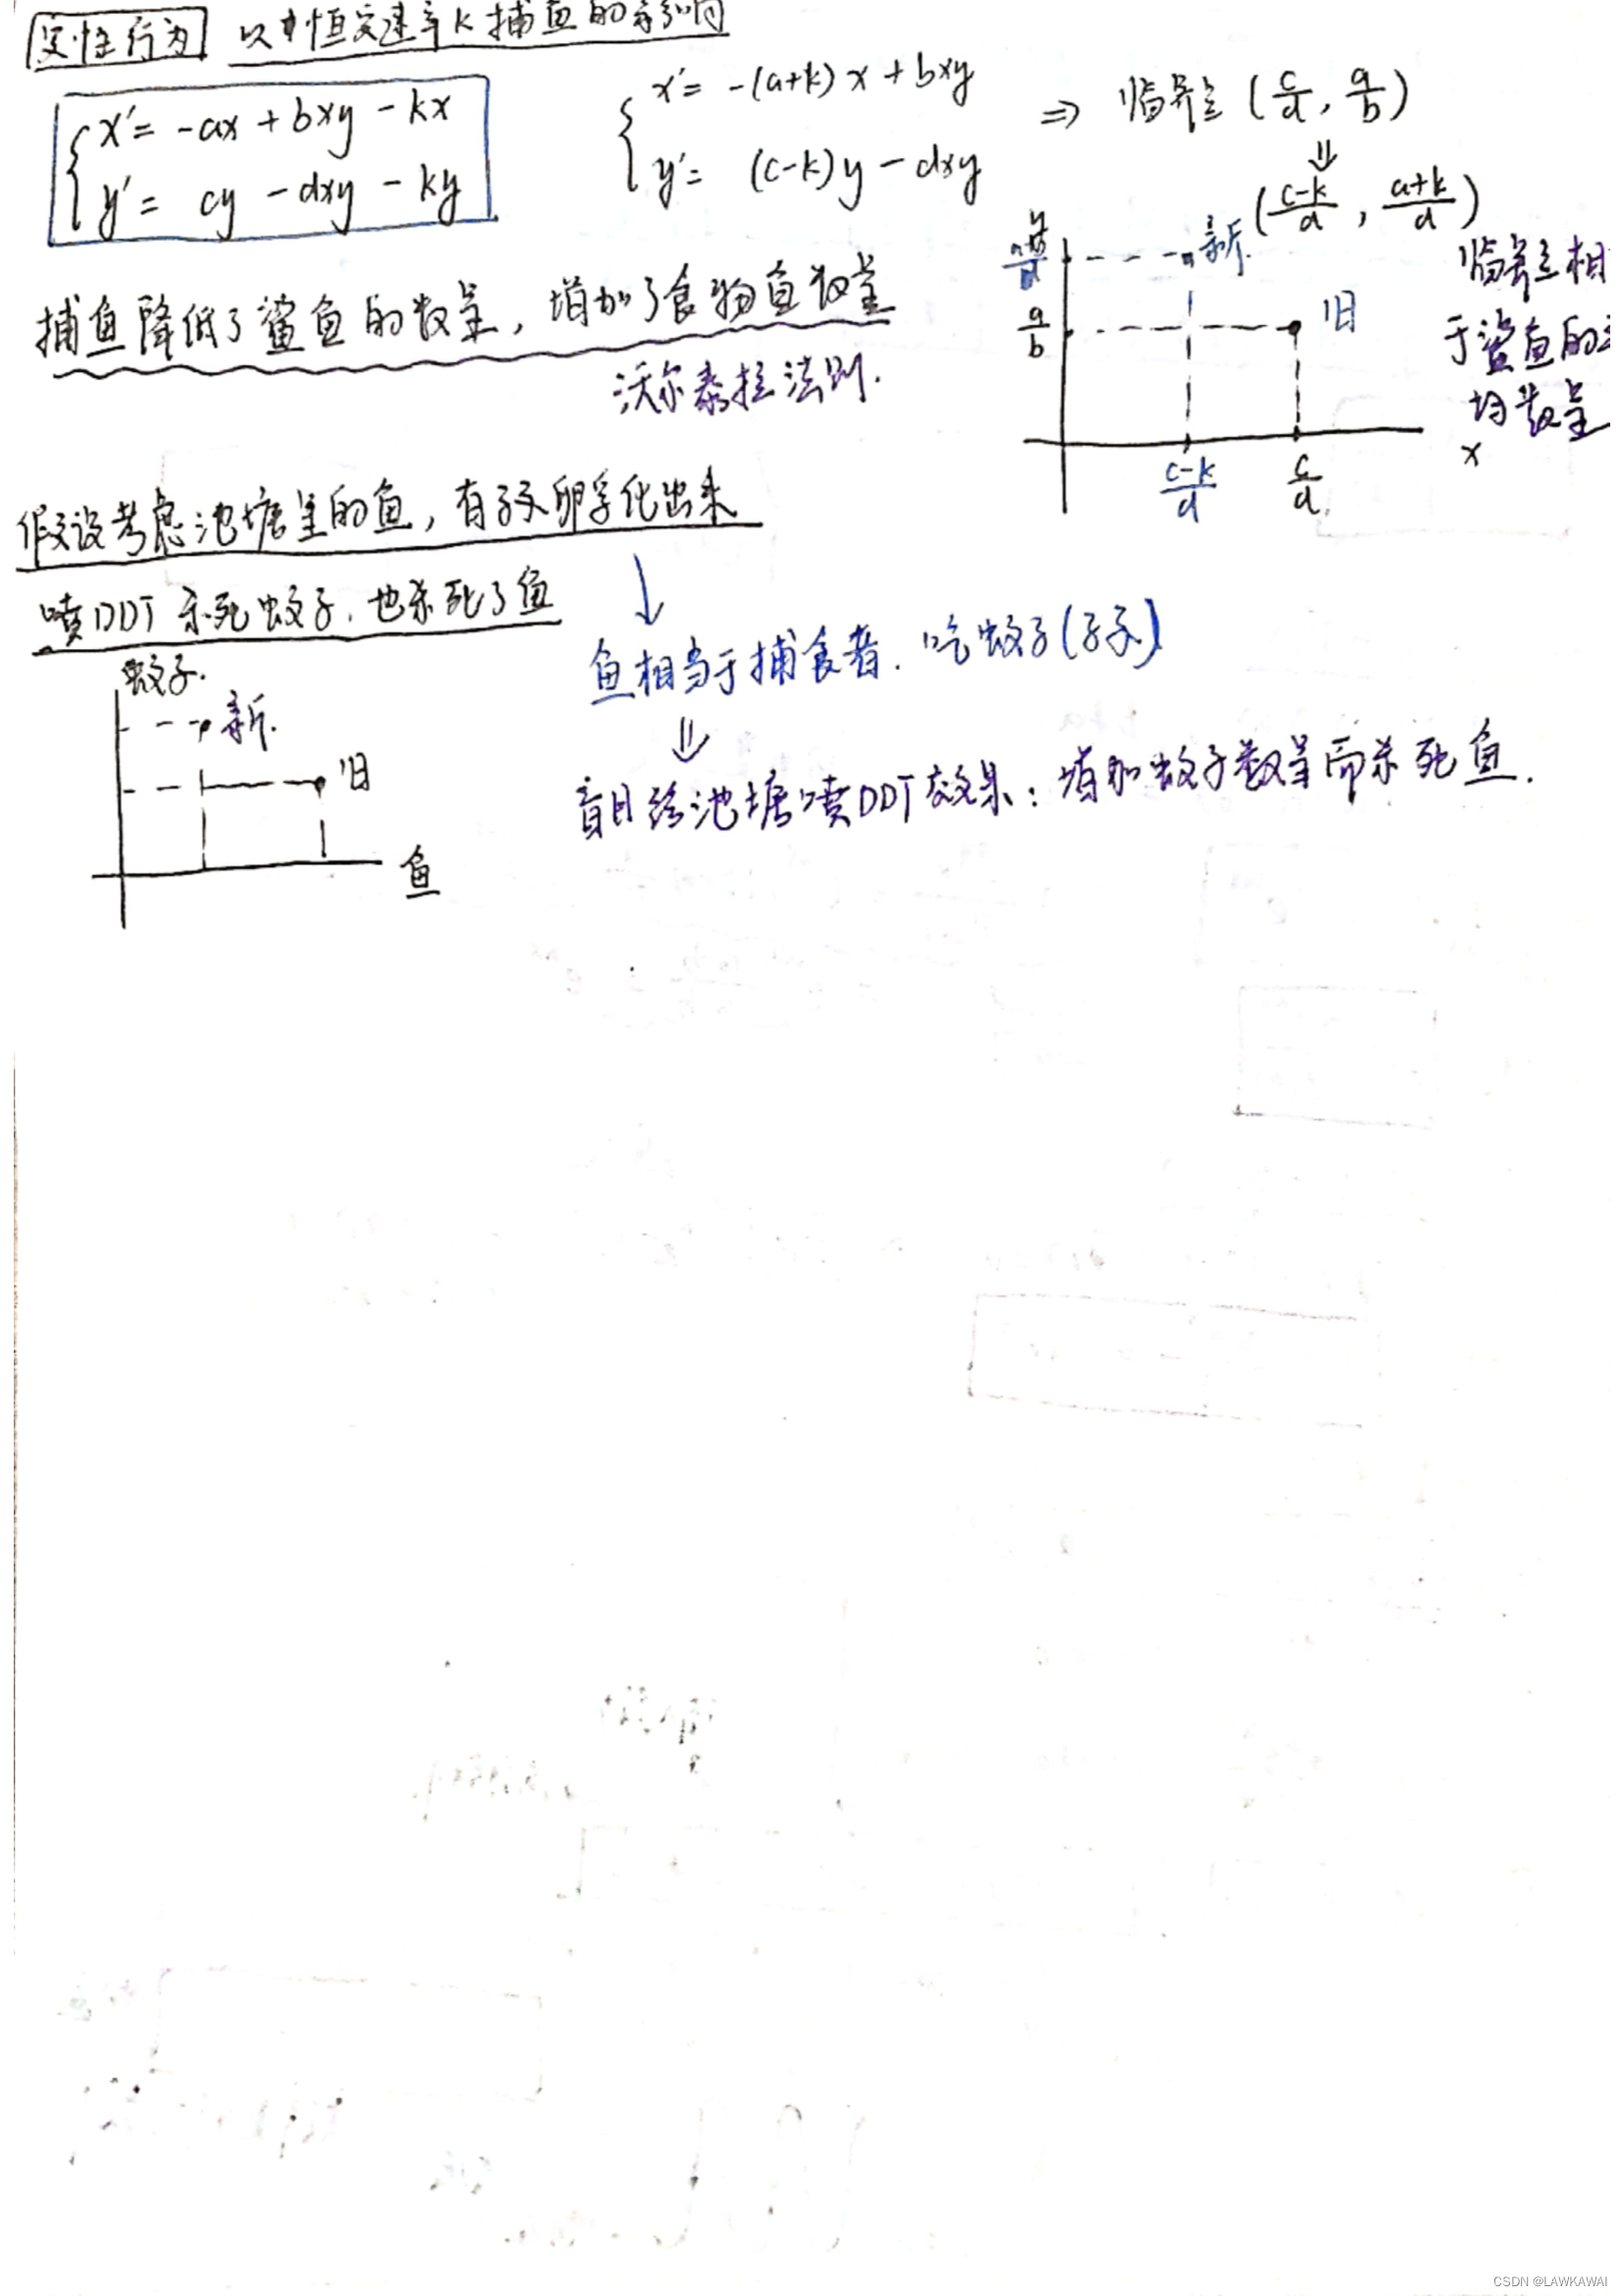 定性行为 以恒定速率k捕鱼的影响
{x' = -ax + bxy - kx
y' = cy - dxy - ky
{x' = -(a+k)x + bxy
y' = (c-k)y - dxy
⇒ 临界点 (c/d, a/b)
⇓
(c-k/d, a+k/d)
捕鱼降低了鲨鱼的数量, 增加了食物鱼数量
沃尔泰拉法则.
y
新.
a/b
旧
c-k/d
c/d
x
临界点相
于鲨鱼的
均数量
假设考虑池塘里的鱼, 有孑孓卵孵化出来
喷DDT杀死蚊子, 也杀死了鱼
↓
鱼相当于捕食者. 吃蚊子(孑孓)
⇓
盲目给池塘喷DDT效果: 增加蚊子数量而杀死鱼.
蚊子.
新.
旧
鱼
CSDN @LAWKAWAI